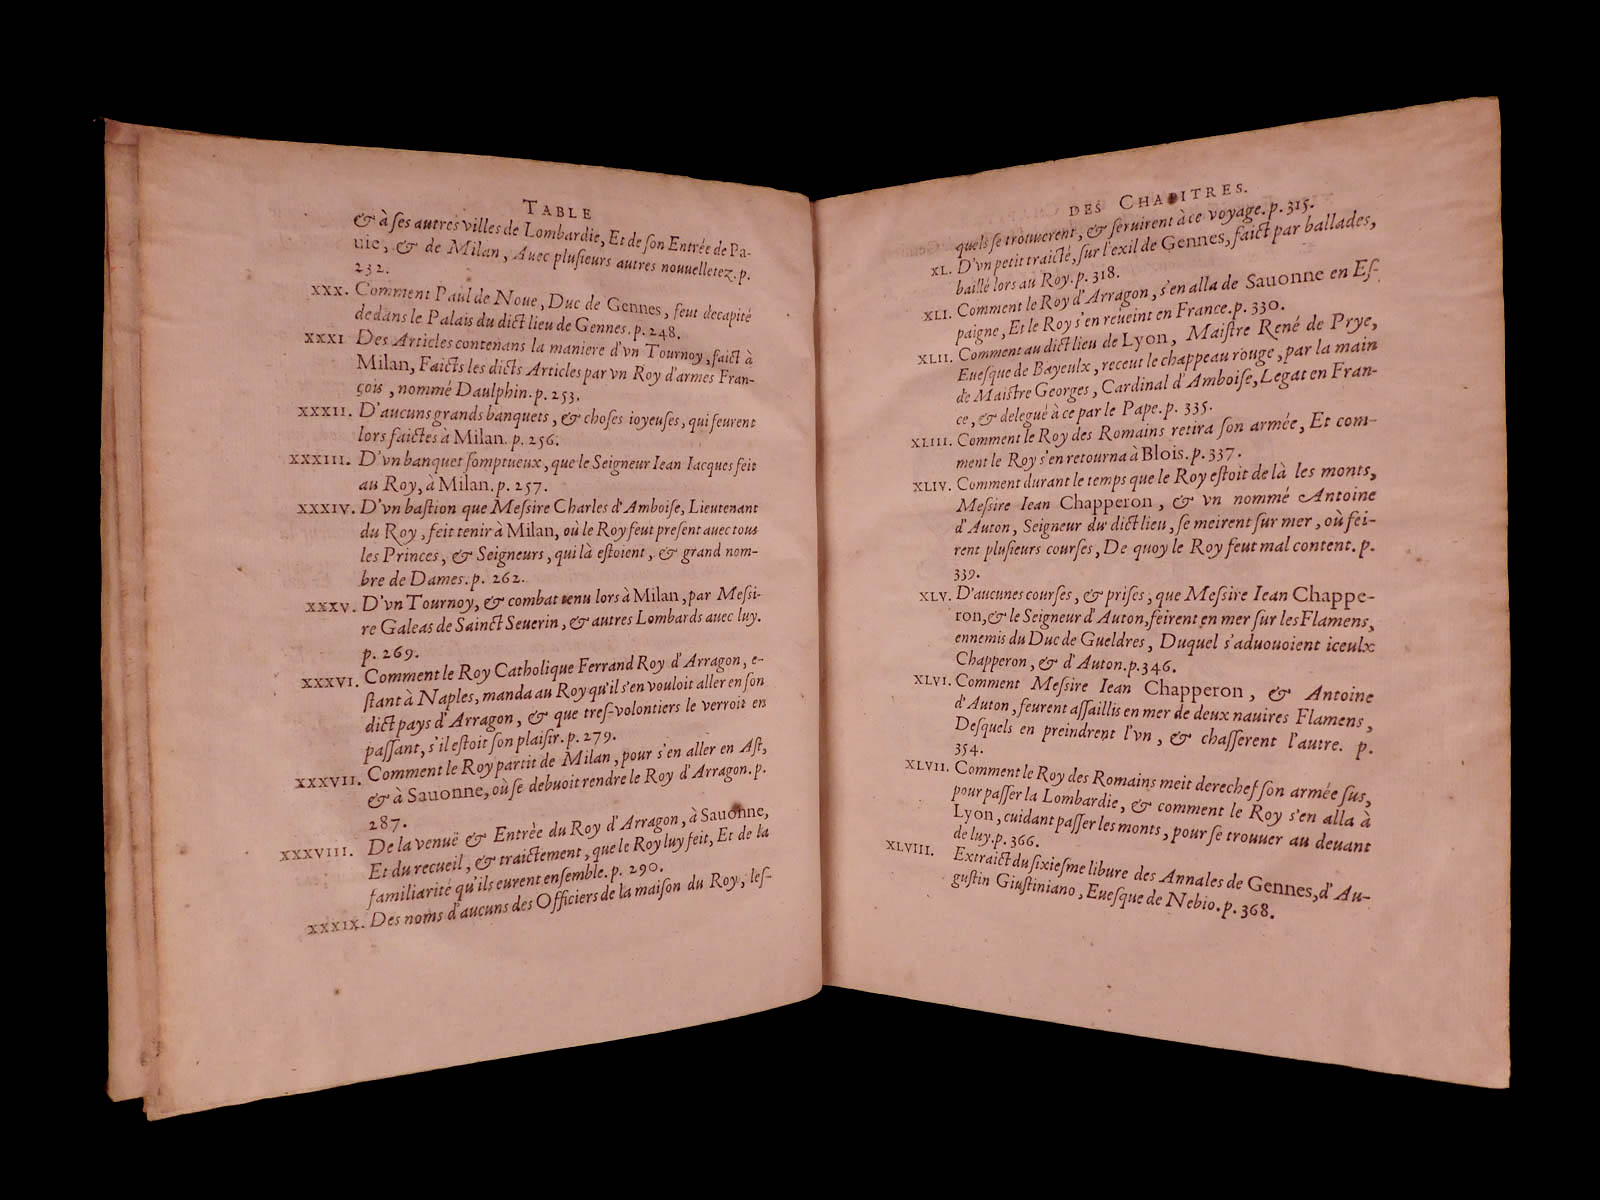 TABLE
& à ses autres villes de Lombardie, Et de son Entrée de Pa-
uie, & de Milan, Auec plusieurs autres nouuelletez. p.
232.
XXX. Comment Paul de Noue, Duc de Gennes, feut decapité
dedans le Palais du dict lieu de Gennes. p. 248.
XXXI Des Articles contenans la maniere d'vn Tournoy, faict à
Milan, Faicts les dicts Articles par vn Roy d'armes Fran-
çois, nommé Daulphin. p. 253.
XXXII. D'aucuns grands banquets, & choses ioyeuses, qui feurent
lors faictes à Milan. p. 256.
XXXIII. D'vn banquet somptueux, que le Seigneur Iean Iacques feit
au Roy, à Milan. p. 257.
XXXIV. D'vn bastion que Messire Charles d'Amboise, Lieutenant
du Roy, feit tenir à Milan, où le Roy feut present auec tous
les Princes, & Seigneurs, qui là estoient, & grand nom-
bre de Dames. p. 262.
XXXV. D'vn Tournoy, & combat tenu lors à Milan, par Messi-
re Galeas de Sainct Seuerin, & autres Lombards auec luy.
p. 269.
XXXVI. Comment le Roy Catholique Ferrand Roy d'Arragon, e-
stant à Naples, manda au Roy qu'il s'en vouloit aller en son
dict pays d'Arragon, & que tres-volontiers le verroit en
passant, s'il estoit son plaisir. p. 279.
XXXVII. Comment le Roy partit de Milan, pour s'en aller en Ast,
& à Sauonne, où se debuoit rendre le Roy d'Arragon. p.
287.
XXXVIII. De la venuë & Entrée du Roy d'Arragon, à Sauonne,
Et du recueil, & traictement, que le Roy luy feit, Et de la
familiarité qu'ils eurent ensemble. p. 290.
XXXIX. Des noms d'aucuns des Officiers de la maison du Roy, les-
DES CHAPITRES.
quels se trouuerent, & seruirent à ce voyage. p. 315.
XL. D'vn petit traicté, sur l'exil de Gennes, faict par ballades,
baillé lors au Roy. p. 318.
XLI. Comment le Roy d'Arragon, s'en alla de Sauonne en Es-
paigne, Et le Roy s'en reueint en France. p. 330.
XLII. Comment au dict lieu de Lyon, Maistre René de Prye,
Euesque de Bayeulx, receut le chappeau rouge, par la main
de Maistre Georges, Cardinal d'Amboise, Legat en Fran-
ce, & delegué à ce par le Pape. p. 335.
XLIII. Comment le Roy des Romains retira son armée, Et com-
ment le Roy s'en retourna à Blois. p. 337.
XLIV. Comment durant le temps que le Roy estoit de là les monts,
Messire Iean Chapperon, & vn nommé Antoine
d'Auton, Seigneur du dict lieu, se meirent sur mer, où fei-
rent plusieurs courses, De quoy le Roy feut mal content. p.
339.
XLV. D'aucunes courses, & prises, que Messire Iean Chappe-
ron, & le Seigneur d'Auton, feirent en mer sur les Flamens,
ennemis du Duc de Gueldres, Duquel s'aduouoient iceulx
Chapperon, & d'Auton. p. 346.
XLVI. Comment Messire Iean Chapperon, & Antoine
d'Auton, feurent assaillis en mer de deux nauires Flamens,
Desquels en preindrent l'vn, & chasserent l'autre. p.
354.
XLVII. Comment le Roy des Romains meit derechef son armée sus,
pour passer la Lombardie, & comment le Roy s'en alla à
Lyon, cuidant passer les monts, pour se trouuer au deuant
de luy. p. 366.
XLVIII. Extraict du sixiesme libure des Annales de Gennes, d'Au-
gustin Giustiniano, Euesque de Nebio. p. 368.